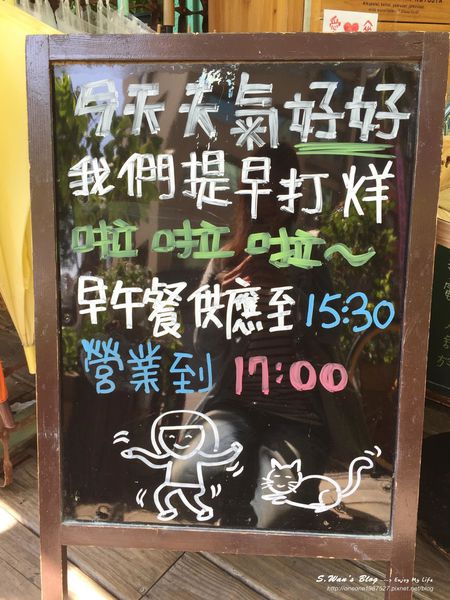 今天天氣好好
我們提早打烊
啦啦啦~
早午餐供應至15:30
營業到 17:00
S.Wan's Blog ---> Enjoy My Life
http://oneone1987527.pixnet.net/blog